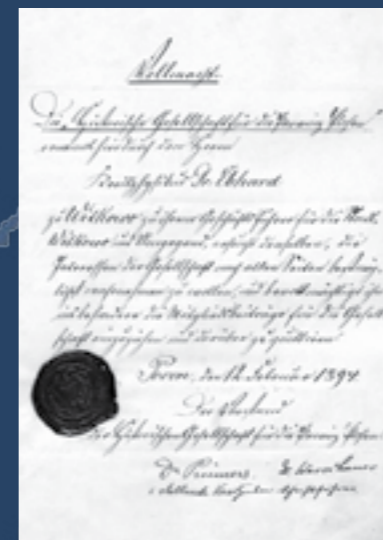 Vollmacht.
Die "Historische Gesellschaft für die Provinz Posen"
ernennt hierdurch den Herrn
Kreisphysikus Dr. Ebhard
zu Witkowo zu ihrem Geschäftsführer für die Stadt
Witkowo und Umgegend, ersucht denselben, die
Interessen der Gesellschaft nach allen Seiten
wahrnehmen zu wollen, und bevollmächtigt ihn
insbesondere die Mitgliedsbeiträge für die Gesell-
schaft einzuziehen und darüber zu quittieren.
Posen, den 12. Februar 1894
Der Vorstand
der Historischen Gesellschaft für die Provinz Posen.
Dr. Prümers.